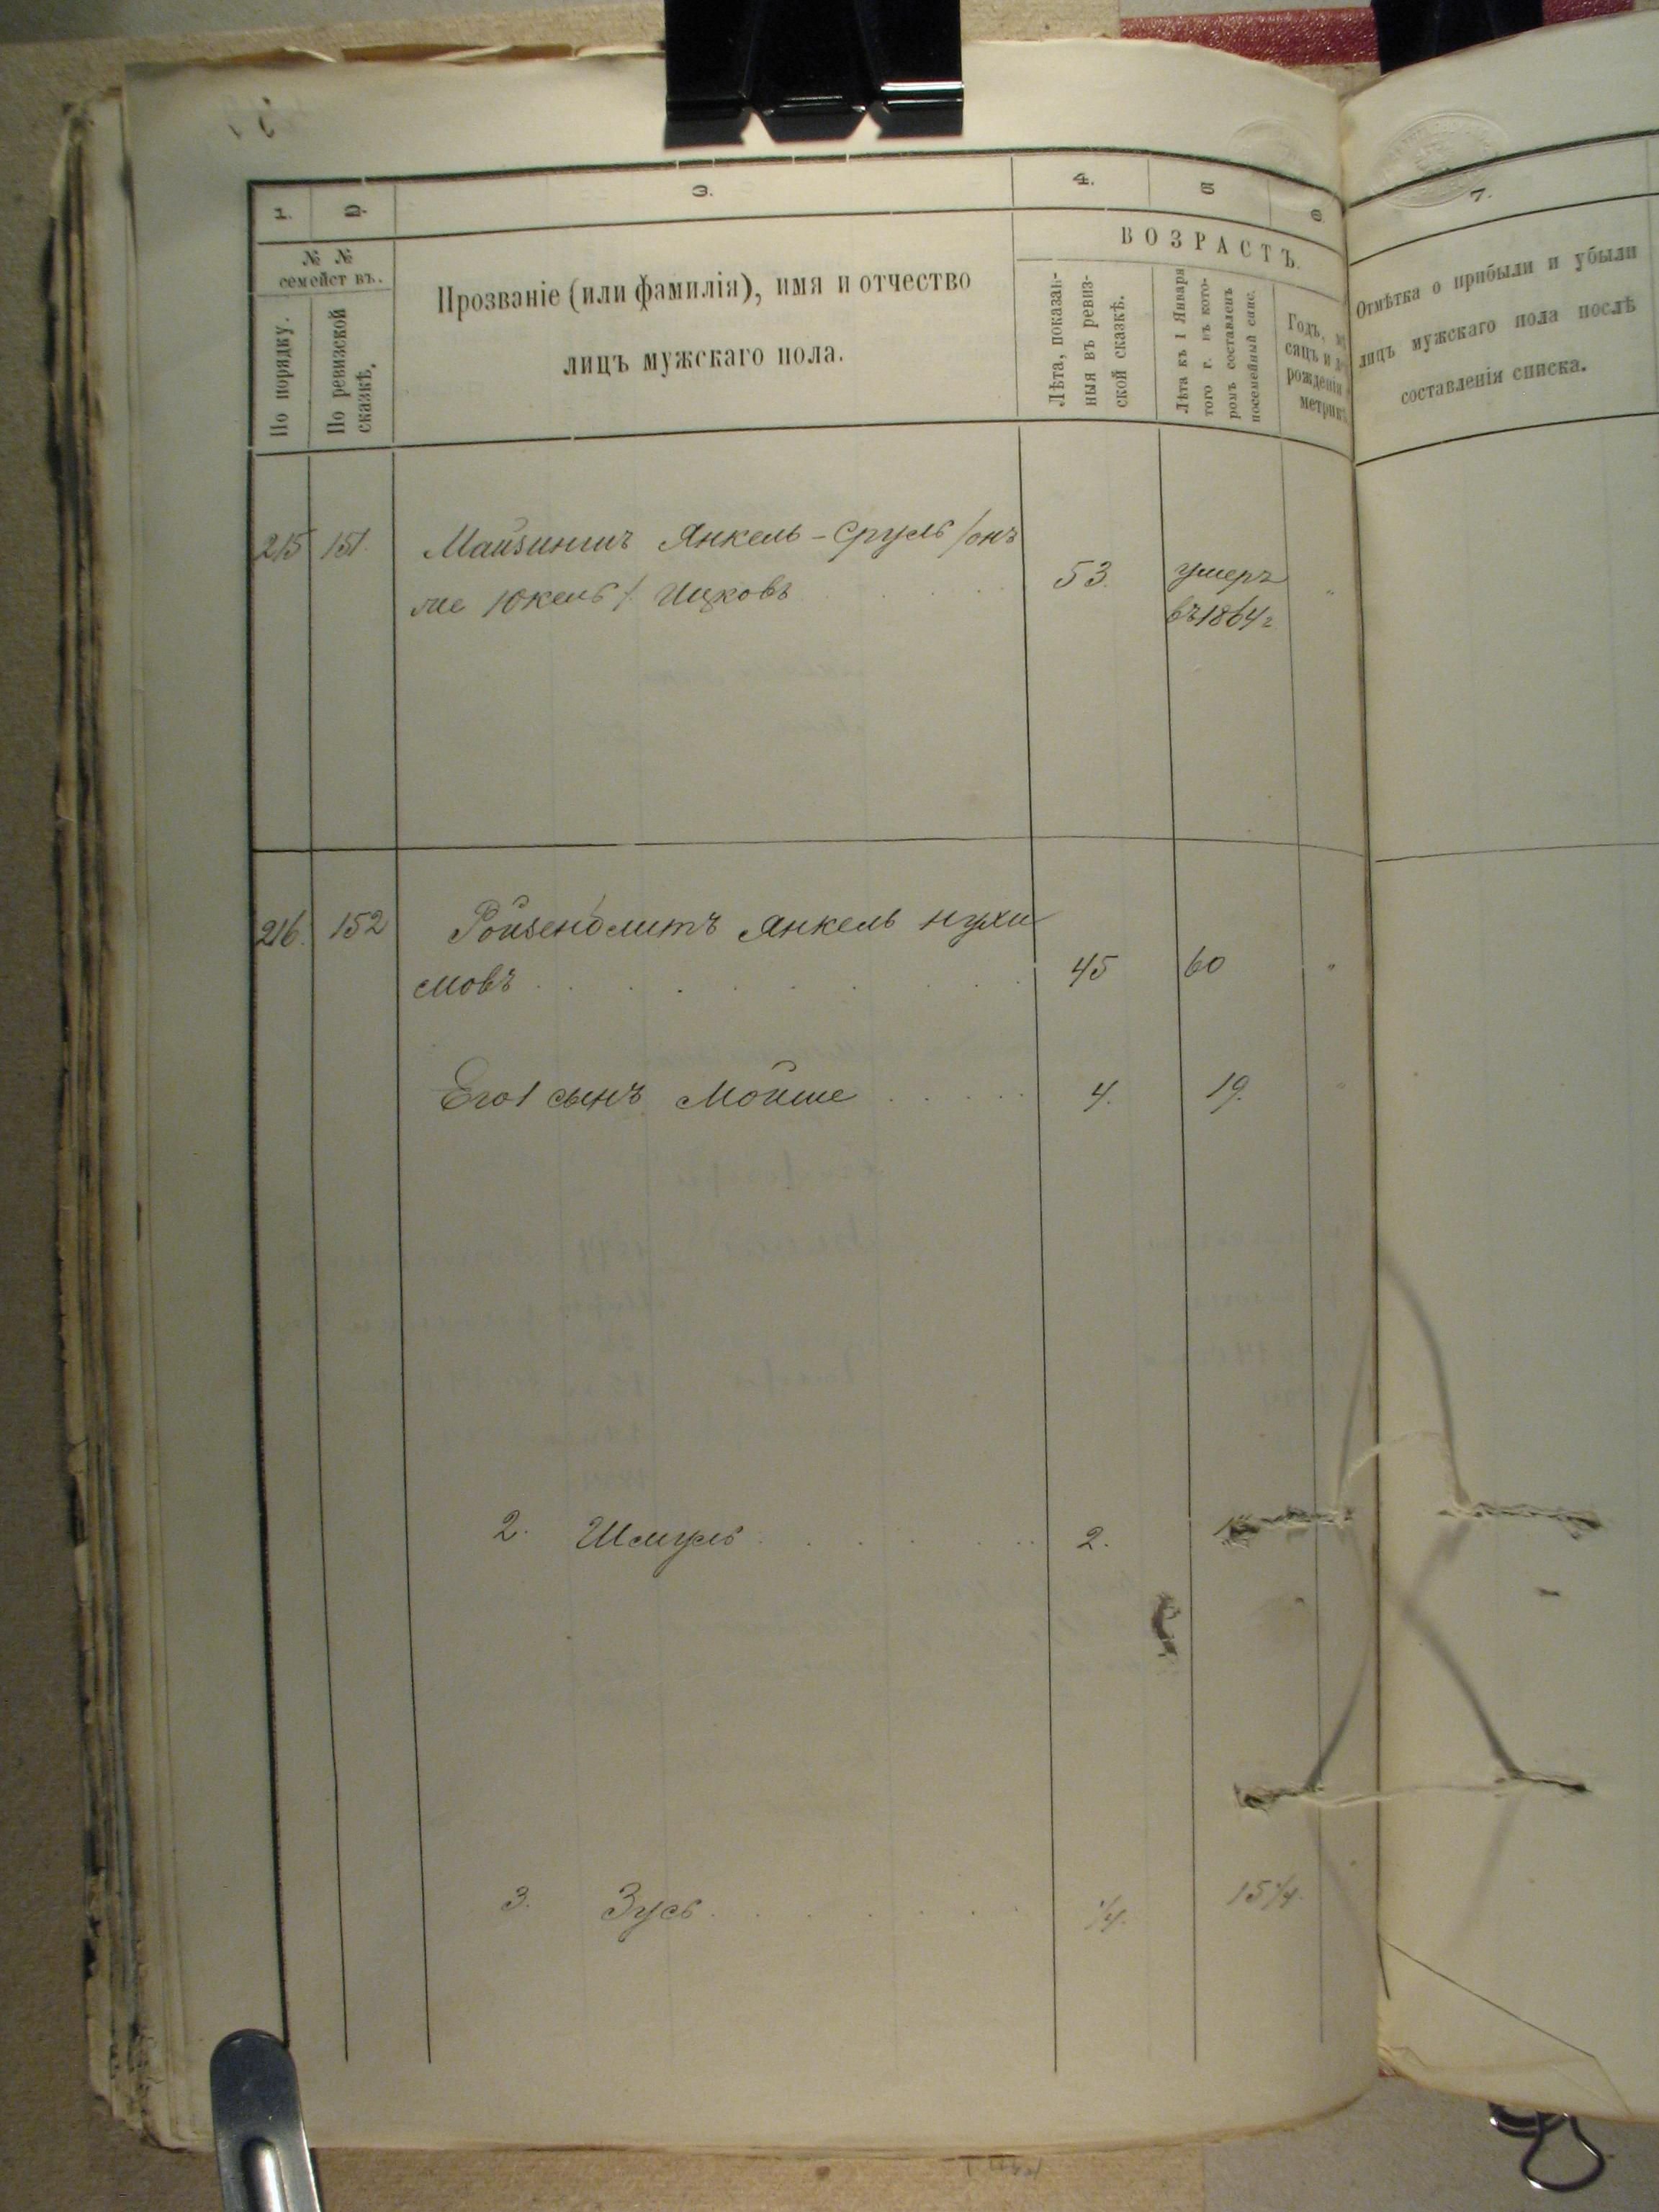 1.
2.
3.
4.
5
6.
7.
№ №
семействъ.
По порядку.
По ревизской
сказкѣ.
Прозваніе (или фамилія), имя и отчество
лицъ мужскаго пола.
ВОЗРАСТЪ.
Лѣта, показан-
ныя въ ревиз-
ской сказкѣ.
Лѣта къ 1 Января
того г. въ кото-
ромъ составленъ
посемейный спис.
Годъ, мѣ
сяцъ и
рожденія
метрик
Отмѣтка о прибыли и убыли
лицъ мужскаго пола послѣ
составленія списка.
215 151. Янкель-Сруль /онъ
же Юкель/. Ицковъ 53. умеръ
въ 1864 г
216. 152 Ройзенблитъ Янкель Нухи
мовъ 45 60
Его 1 сынъ Мойше 4. 19.
2. Шмуль 2.
3. Зусь 1/4. 15 1/4.